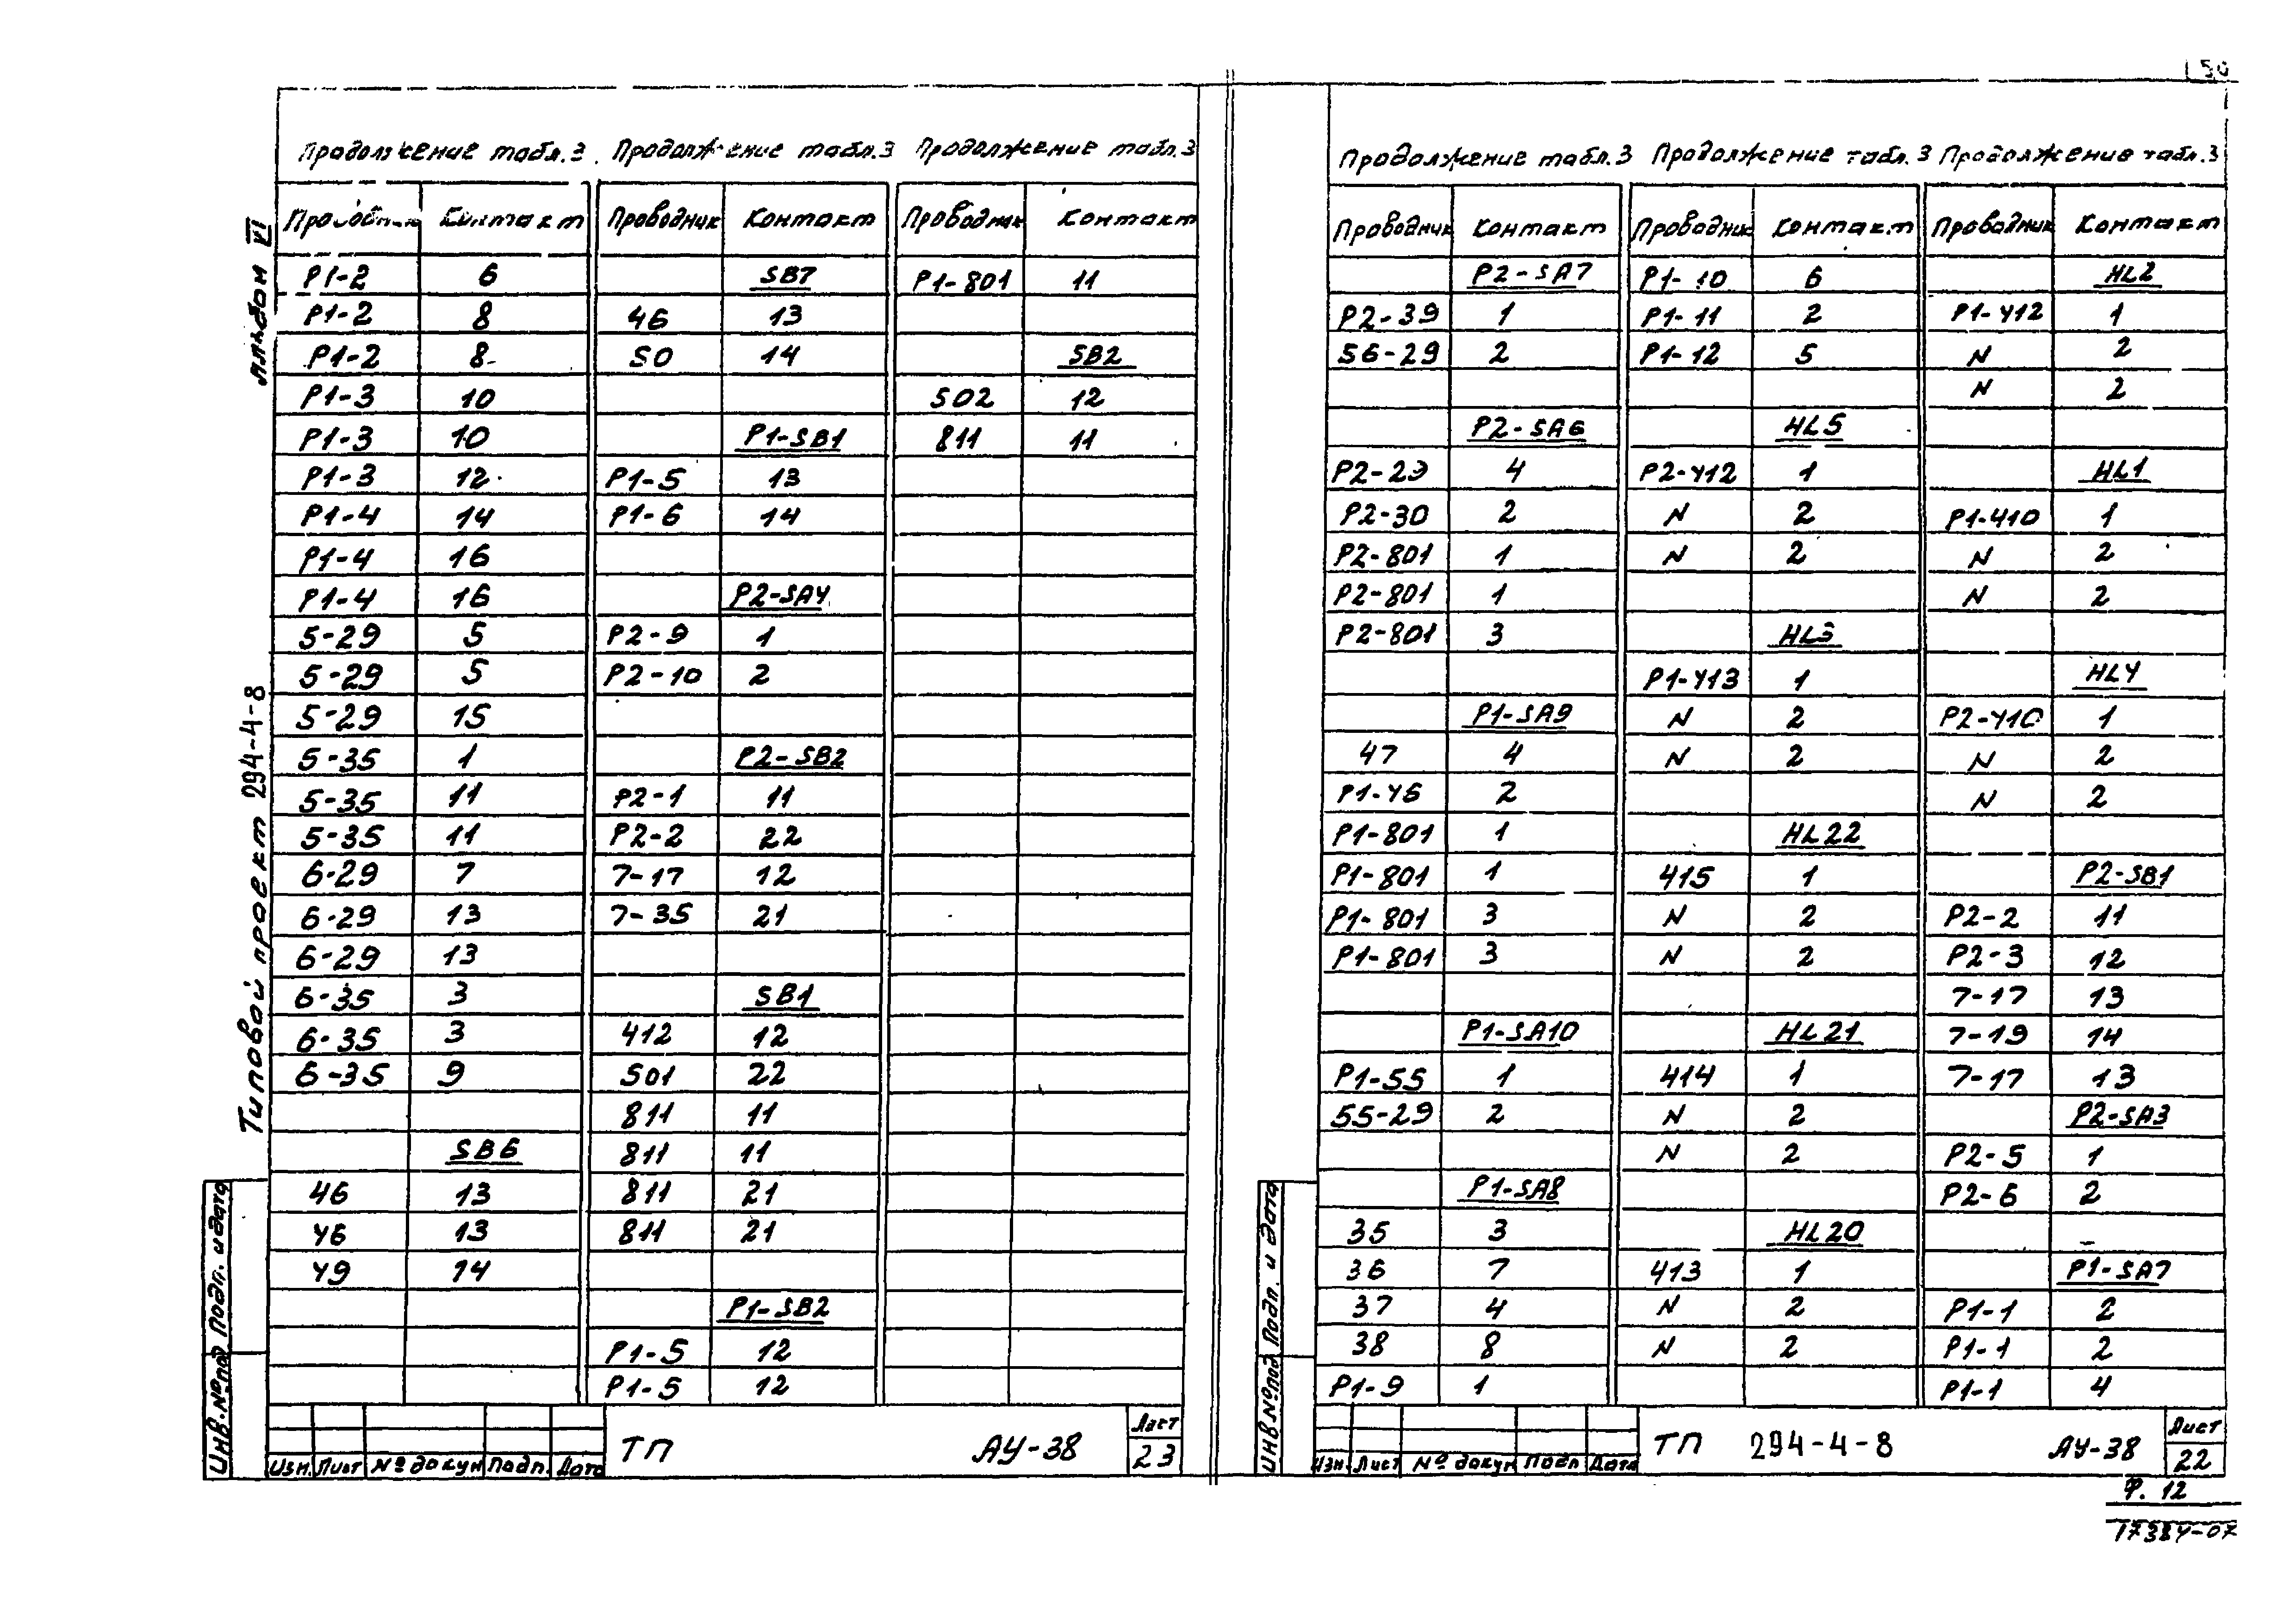 50
Продолжение табл.3 Продолжение табл.3 Продолжение табл.3
Проводник Контакт Проводник Контакт Проводник Контакт
P1-2 6 SB7 P1-801 11
P1-2 8 46 13
P1-2 8 50 14 SB2
P1-3 10 502 12
P1-3 10 P1-SB1 811 11
P1-3 12 P1-5 13
P1-4 14 P1-6 14
P1-4 16
P1-4 16 P2-SA4
5-29 5 P2-9 1
5-29 5 P2-10 2
5-29 15
5-35 1 P2-SB2
5-35 11 P2-1 11
5-35 11 P2-2 22
6-29 7 7-17 12
6-29 13 7-35 21
6-29 13
6-35 3 SB1
6-35 3 412 12
6-35 9 501 22
811 11
SB6 811 11
46 13 811 21
46 13 811 21
49 14
P1-SB2
P1-5 12
P1-5 12
Альбом VI
Типовой проект 294-4-8
Инв.№под Подп. и дата
Изм. Лист № докум Подп. Дата
ТП АУ-38
Лист
23
Продолжение табл.3 Продолжение табл.3 Продолжение табл.3
Проводник Контакт Проводник Контакт Проводник Контакт
P2-SA7 P1-10 6 HL2
P2-39 1 P1-11 2 P1-412 1
56-29 2 P1-12 5 N 2
N 2
P2-SA6 HL5
P2-29 4 P2-412 1 HL1
P2-30 2 N 2 P1-410 1
P2-801 1 N 2 N 2
P2-801 1 N 2
P2-801 3 HL3
P1-413 1 HL4
P1-SA9 N 2 P2-410 1
47 4 N 2 N 2
P1-46 2 N 2
P1-801 1 HL22
P1-801 1 415 1 P2-SB1
P1-801 3 N 2 P2-2 11
P1-801 3 N 2 P2-3 12
7-17 13
P1-SA10 HL21 7-19 14
P1-55 1 414 1 7-17 13
55-29 2 N 2 P2-SA3
N 2 P2-5 1
P1-SA8 P2-6 2
35 3 HL20
36 7 413 1 P1-SA7
37 4 N 2 P1-1 2
38 8 N 2 P1-1 2
P1-9 1 P1-1 4
Инв.№под Подп. и дата
Изм. Лист № докум Подп Дата
ТП 294-4-8 АУ-38
Лист
22
Ф. 12
17384-07